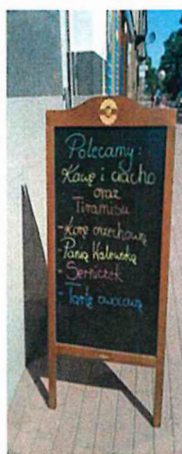 Polecamy:
Kawę i ciacho
oraz
Tiramisu
- Korę orzechową
- Panią Walewską
- Serniczek
- Tartę owocową